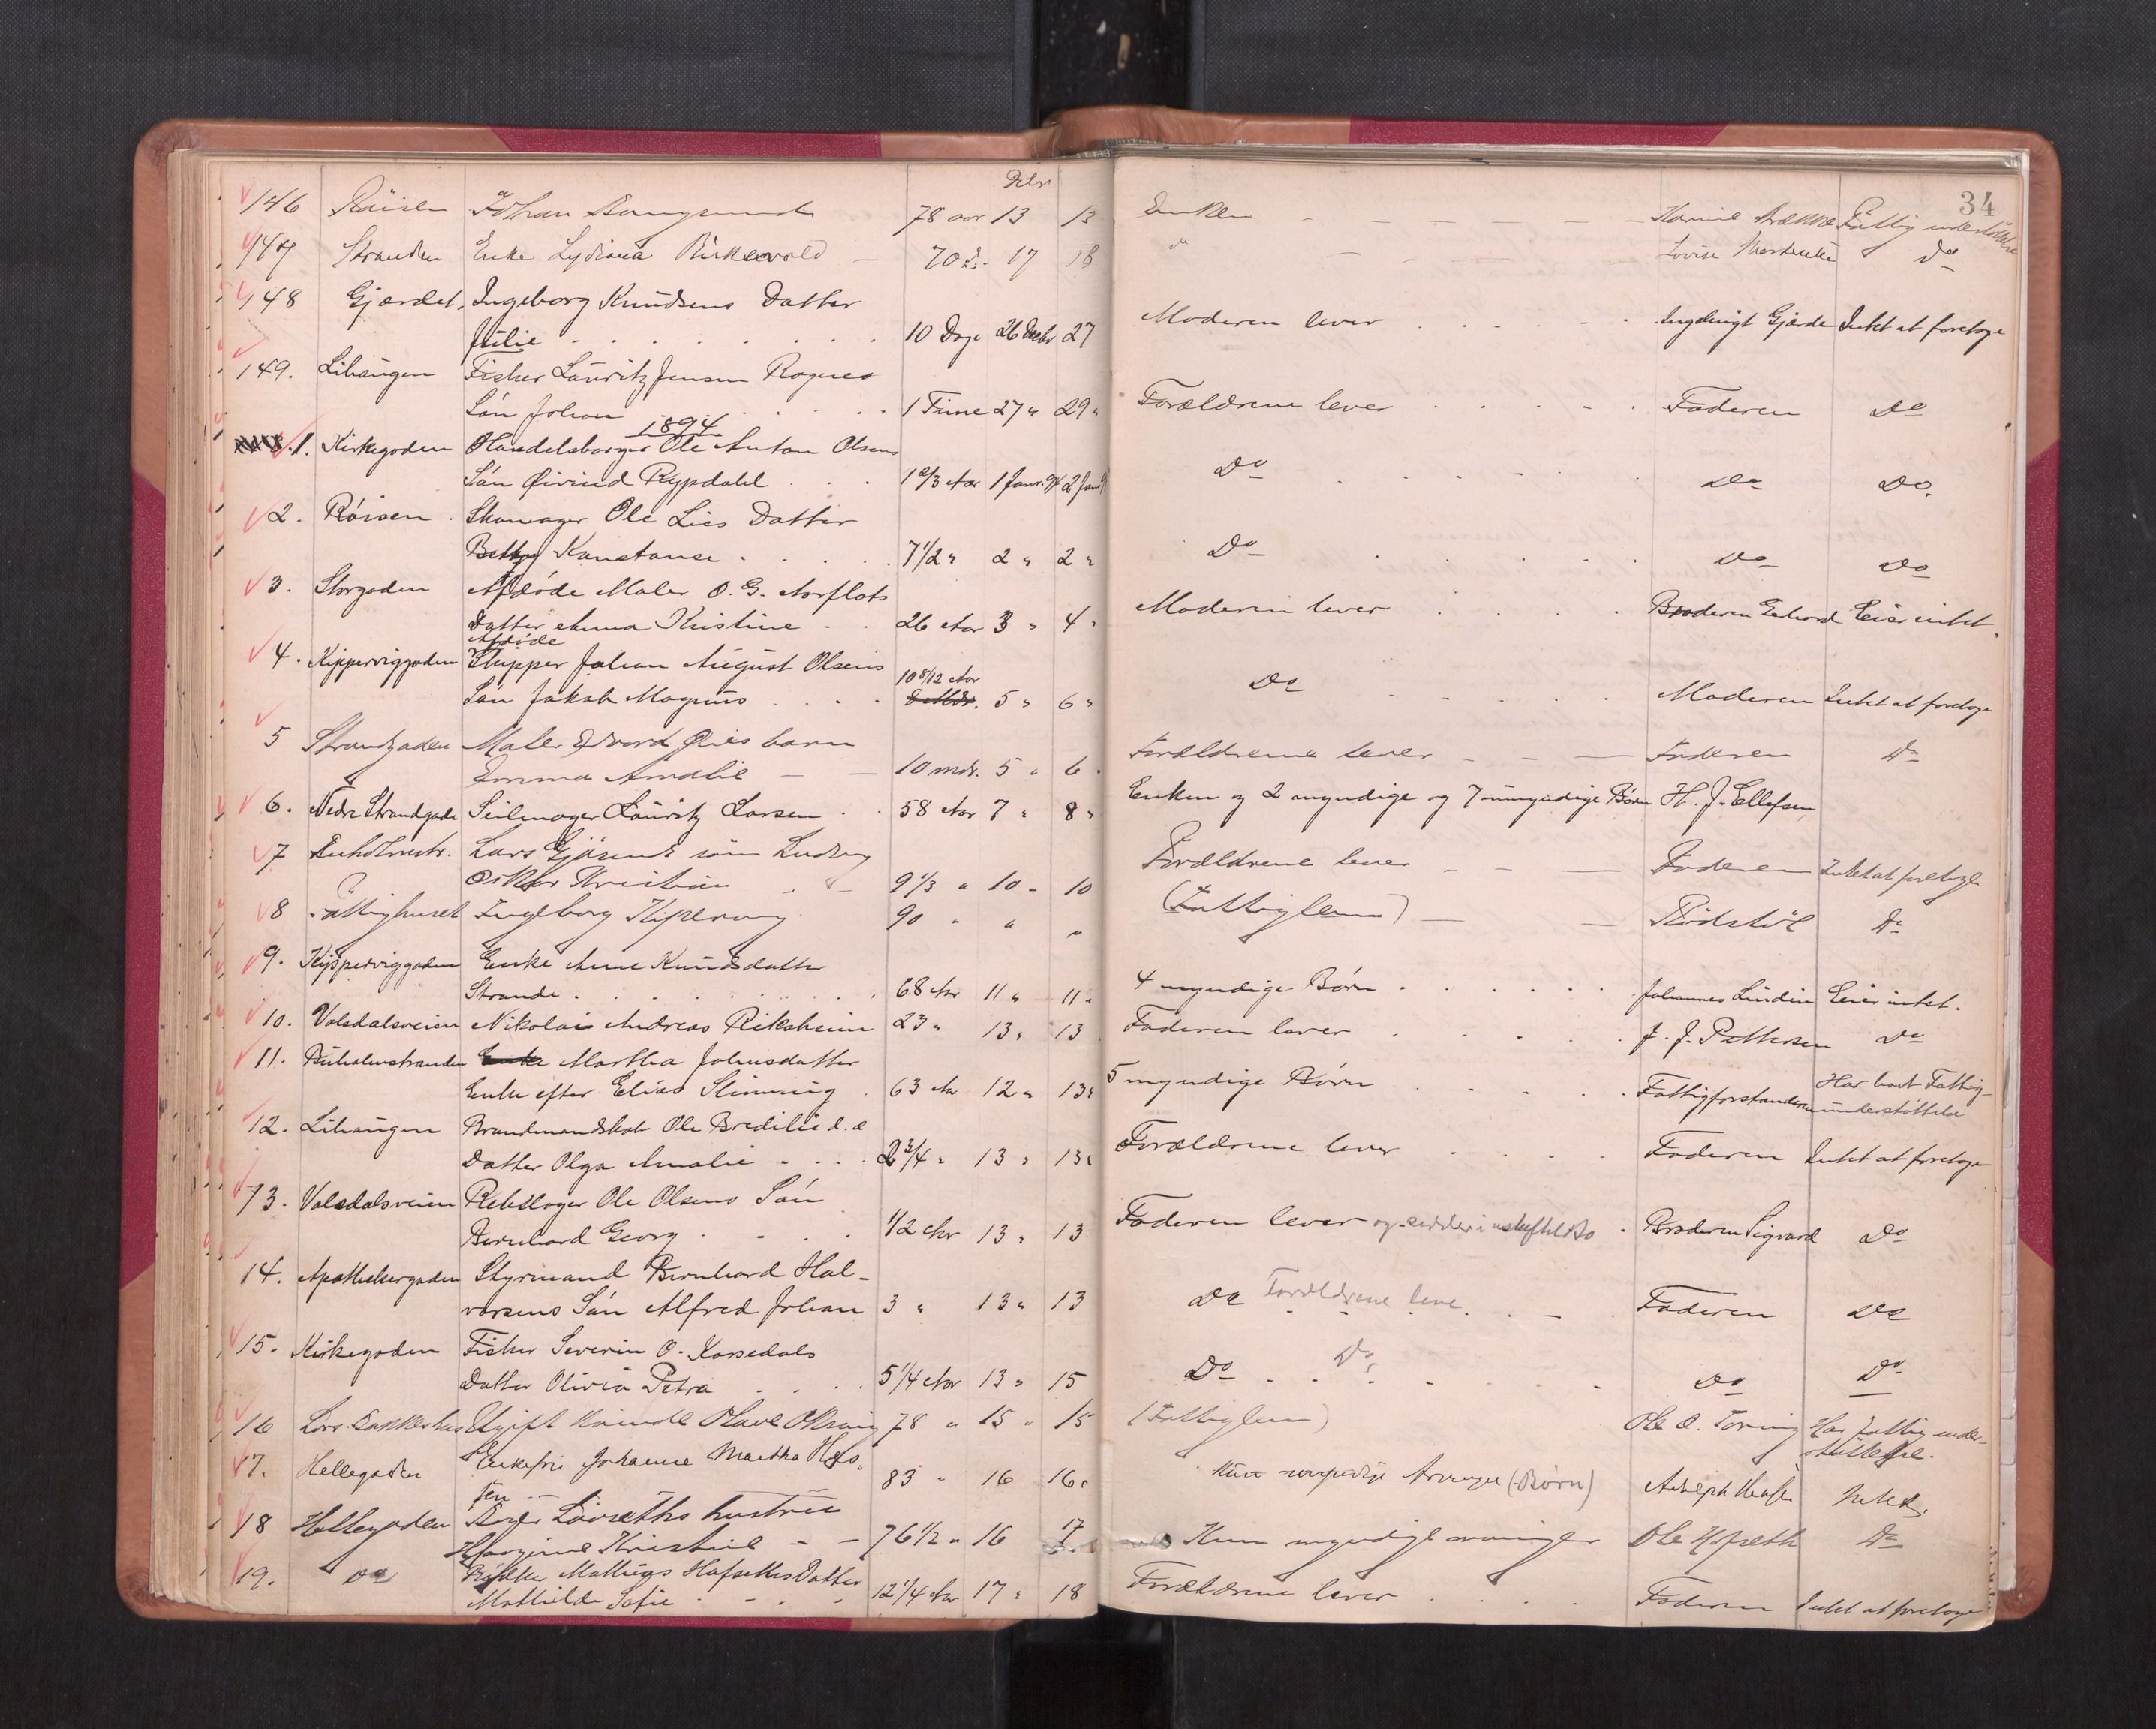 34
146 Röisen Johan 78 aar 13 13 Enken Fattig understöttelse
147 Stranden Enke Lydiana Birkevold 70 do 17 18 do Lovise do
148 Gjærdet, Ingeborg Knudsens Datter
Julie 10 Dage 26 Decbr 27 Moderen lever Gjærde Intet at foretage
149. Lihaugen Fisker Lauritz Jensen Rognes
Sön Johan 1 Time 27 " 29 " Forældrene lever Faderen Do
1894
1. Kirkegaden Handelsborger Ole Anton Olsens
Sön Øivind Rypdahl 1 2/3 Aar 1 Janr. 94 2 Jan Do Do Do.
2. Röisen Skomager Ole Lies Datter
Betty Konstanse 7 1/2 " 2 " 2 " Do Do Do
3. Storgaden Afdöde Maler O. G. Aarflots
Datter Anna Kristine 26 Aar 3 " 4 " Moderen lever Broderen Eier intet.
Afdöde
4. Kipperviggaden Skipper Johan August Olsens
Sön Jakob Magnus 10 8/12 Aar 5 " 6 " Do Moderen Intet at foretage
5 Strandgaden Maler Edvard Øies barn
Emma Amalie 10 mdr. 5 " 6 Forældrene lever Faderen Do
6. Nedre Strandgade Seilmager Lauritz Larsen 58 Aar 7 " 8 " Enken og 2 myndige og 7 umyndige Börn H. J. Ellefsen
7 Lars sön Ludvig
Oskar Kristian 9 1/3 " 10 " 10 Forældrene lever Faderen Intet at foretage
8 Fattighuset Ingeborg 90 " " " (Fattiglem) Rödstöl Do
9. Kipperviggaden Enke Anne Knudsdatter
Strande 68 Aar 11 " 11 " 4 myndige Börn Johannes Lindin Eier intet.
10. Volsdalsveien Nikolai Andreas Riksheim 23 " 13 " 13 Faderen lever J. J. Pettersen Do
11. Buholmstranden Enke Martha Johnsdatter
Enke efter Elias Slinning 63 Aar 12 " 13 " 5 myndige Börn Fattigforstanderen Har havt Fattig-
understöttelse
12. Lihaugen Brandmandskab Ole Bredilie d. æ
Datter Olga Amalie 2 3/4 " 13 " 13 " Forældrene lever Faderen Intet at foretage
13. Volsdalsveien Rebslager Ole Olsens Sön
Bernhard Georg 1/2 Aar 13 " 13 Faderen lever og sidder i uskiftet Bo Broderen Sigvard Do
14. Apothekergaden Styrmand Bernhard Hal-
vorsens Sön Alfred Johan 3 " 13 " 13 Do Forældrene leve Faderen Do
15. Kirkegaden Fisker Severin O. Korsedals
Datter Olivia Petra 5 1/4 Aar 13 " 15 Do Do Do Do
16 Ugift Kvinde Olave 78 " 15 " 15 (Fattiglem) Ole O. Har fattig under-
stöttelse.
17. Hellegaden Enkefru Johanne Martha
sen 83 " 16 16 " Kun myndige Arvinger (Börn) Intet.
18 Hellegaden hustru
Kristine 76 1/2 " 16 17 Kun myndige arvinger Ole Do
19. Do Mathias Datter
Mathilde Sofie 12 1/4 Aar 17 " 18 Forældrene lever Faderen Intet at foretage